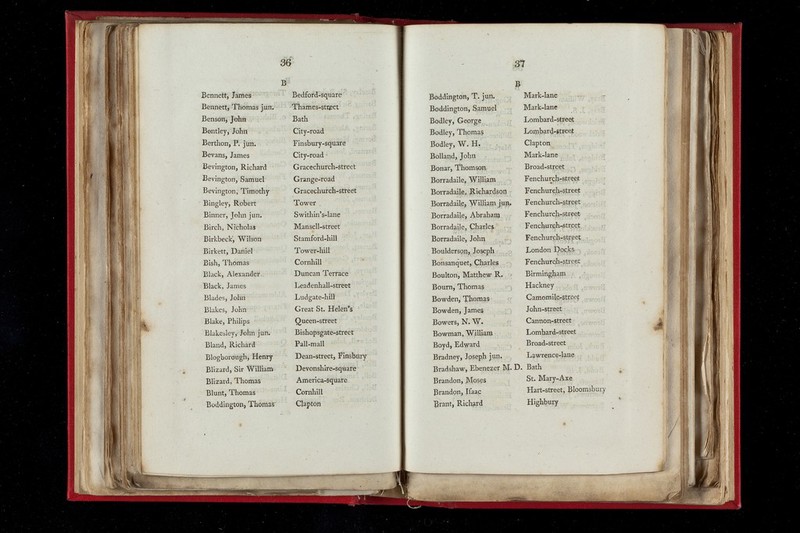 36
B
Bennett, James Bedford-square
Bennett, Thomas jun. Thames-street
Benson, John Bath
Bentley, John City-road
Berthon, P. jun. Finsbury-square
Bevans, James City-road
Bevington, Richard Gracechurch-street
Bevington, Samuel Grange-road
Bevington, Timothy Gracechurch-street
Bingley, Robert Tower
Binner, John jun. Swithin's-lane
Birch, Nicholas Mansell-street
Birkbeck, Wilson Stamford-hill
Birkett, Daniel Tower-hill
Bish, Thomas Cornhill
Black, Alexander Duncan Terrace
Black, James Leadenhall-street
Blades, John Ludgate-hill
Blakes, John Great St. Helen's
Blake, Philips Queen-street
Blakesley, John jun. Bishopsgate-street
Bland, Richard Pall-mall
Blogborough, Henry Dean-street, Finsbury
Blizard, Sir William Devonshire-square
Blizard, Thomas America-square
Blunt, Thomas Cornhill
Boddington, Thomas Clapton
37
B
Boddington, T. jun. Mark-lane
Boddington, Samuel Mark-lane
Bodley, George Lombard-street
Bodley, Thomas Lombard-street
Bodley, W. H. Clapton
Bolland, John Mark-lane
Bonar, Thomson Broad-street
Borradaile, William Fenchurch-street
Borradaile, Richardson Fenchurch-street
Borradaile, William jun. Fenchurch-street
Borradaile, Abraham Fenchurch-street
Borradaile, Charles Fenchurch-street
Borradaile, John Fenchurch-street
Boulderson, Joseph London Docks
Bonsanquet, Charles Fenchurch-street
Boulton, Matthew R. Birmingham
Bourn, Thomas Hackney
Bowden, Thomas Camomile-street
Bowden, James John-street
Bowers, N. W. Cannon-street
Bowman, William Lombard-street
Boyd, Edward Broad-street
Bradney, Joseph jun. Lawrence-lane
Bradshaw, Ebenezer M. D. Bath
Brandon, Moses St. Mary-Axe
Brandon, Isaac Hart-street, Bloomsbury
Brant, Richard Highbury